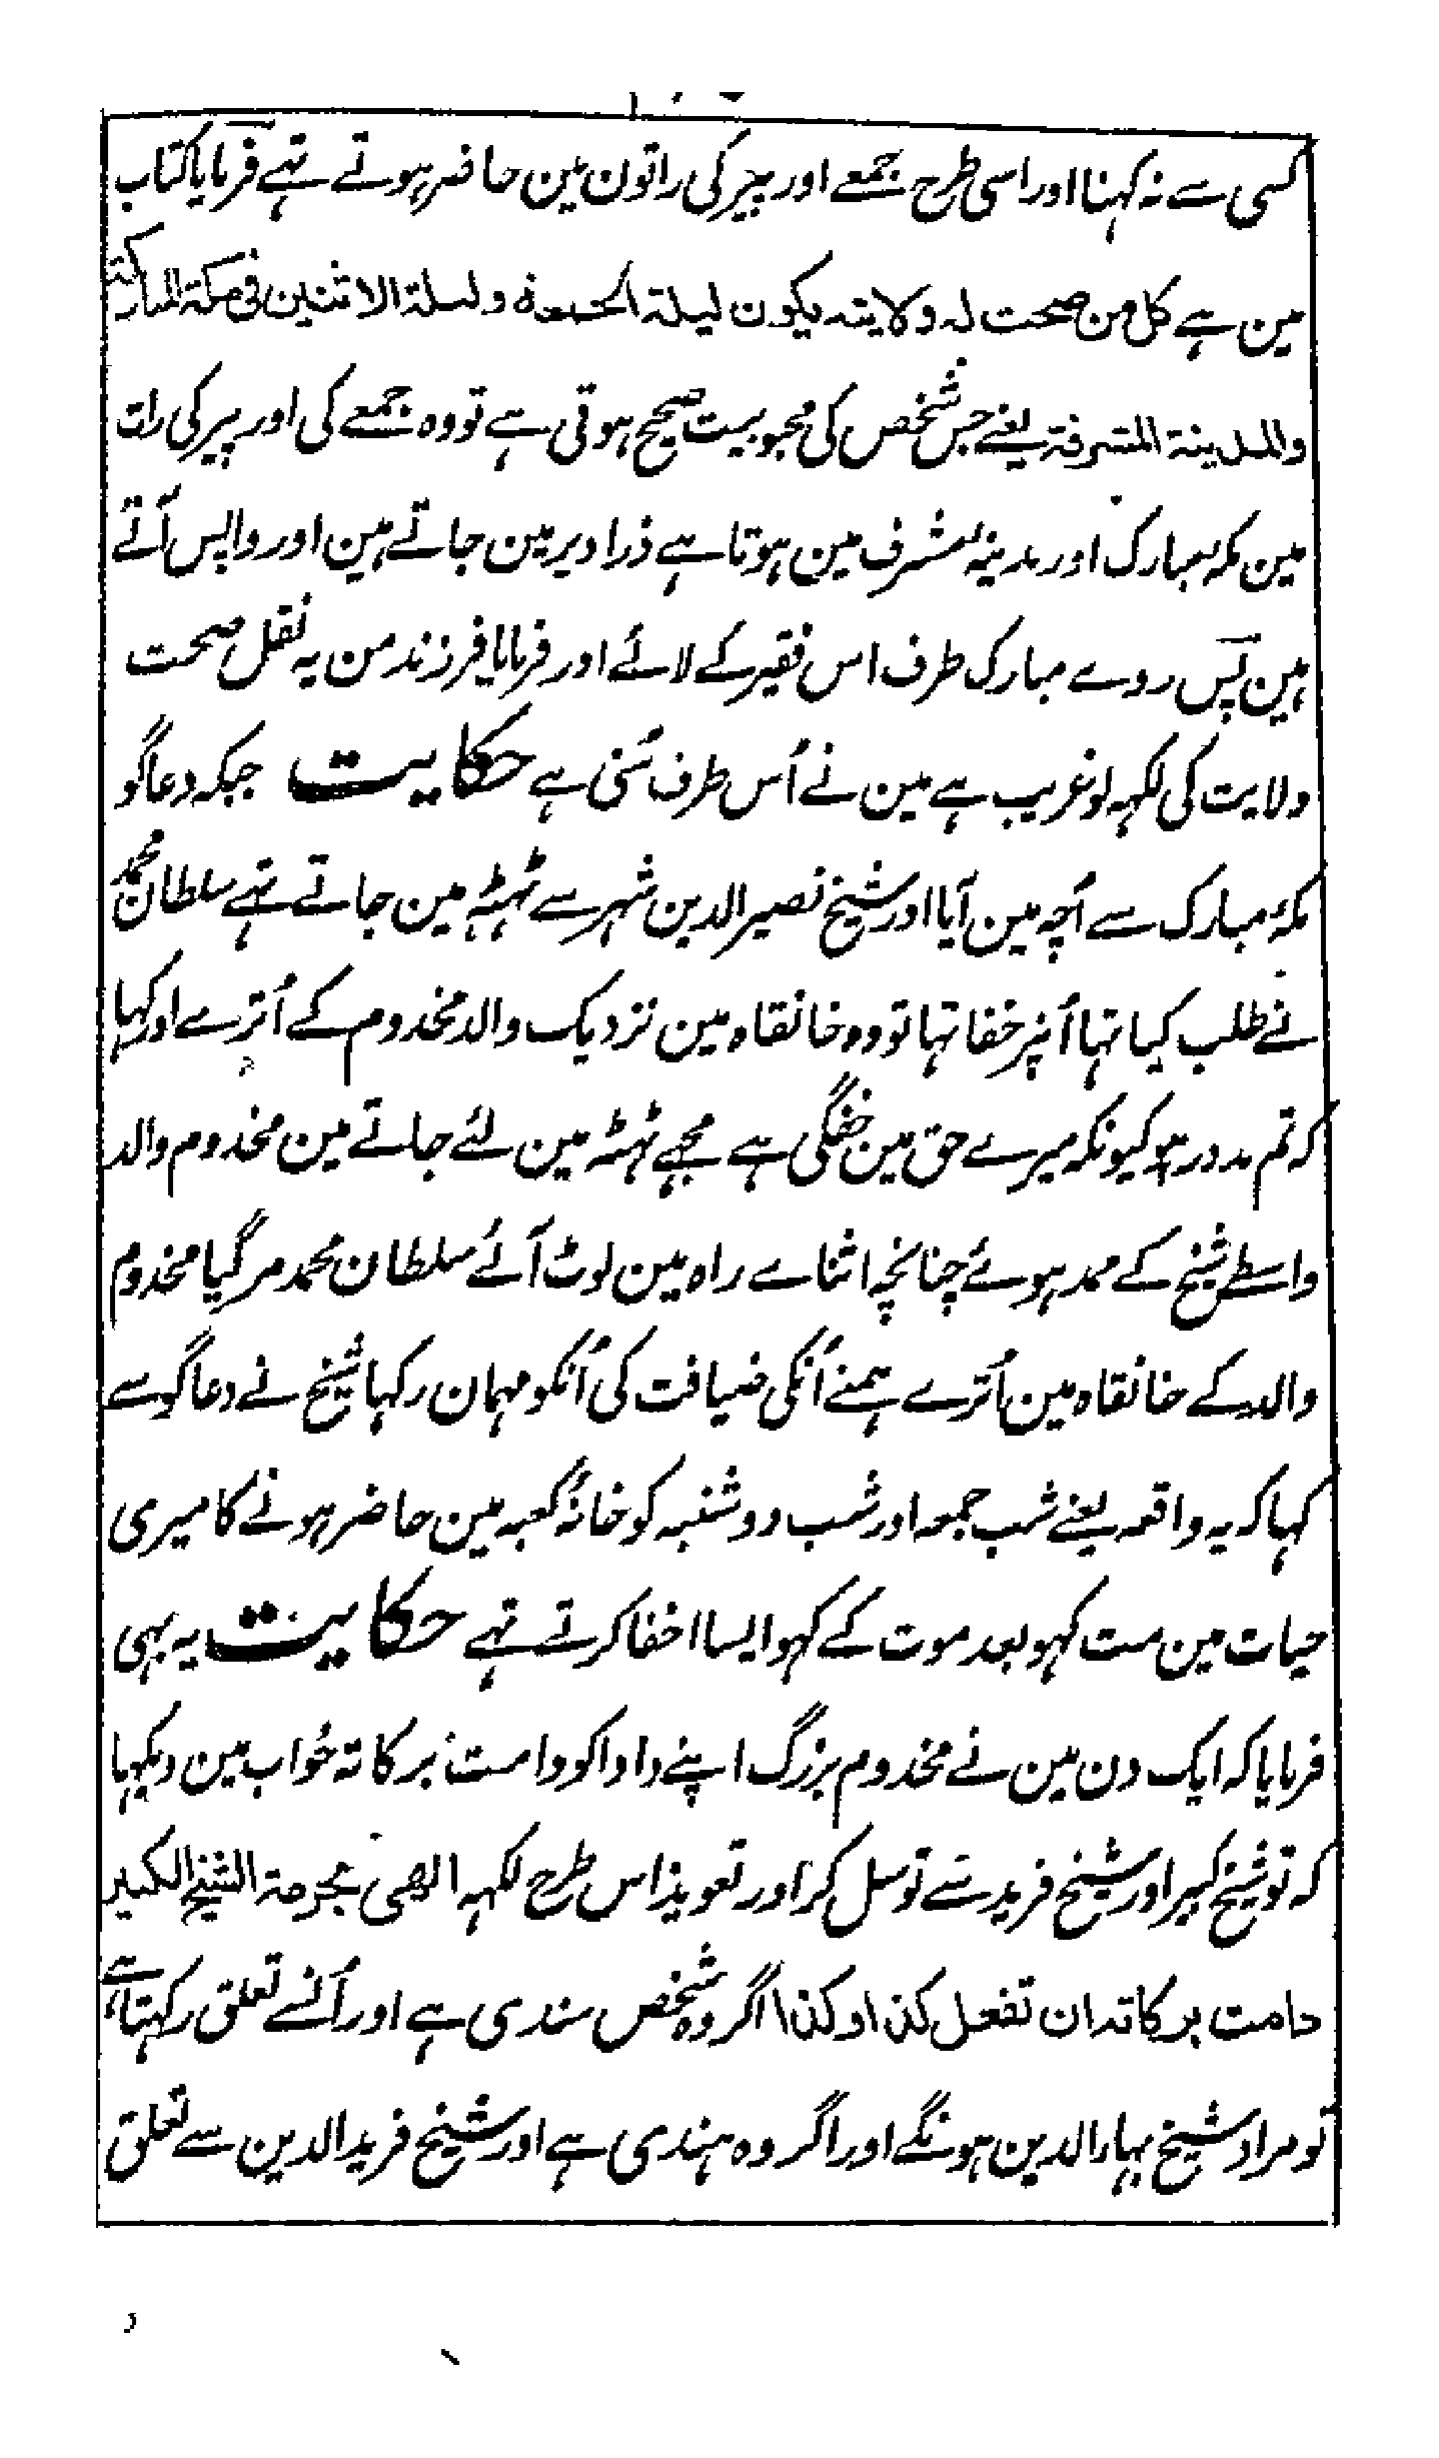 کسی سے نہ کہنا اور اسی طرح جمعے اور پیر کی راتون مین حاضر ہوتے تہے فرمایا کتاب
مین ہے کل من صحت له ولایته یکون لیلة الجمعة ولیلة الاثنین فی مکة المبارکة
والمدینة المشرفة یعنے جس شخص کی محبوبیت صحیح ہوتی ہے تو وہ جمعے کی اور پیر کی رات
مین مکہ مبارک اور مدینۂ مشرف مین ہوتا ہے ذرا دیر مین جاتے ہین اور واپس آتے
ہین پس روے مبارک طرف اس فقیر کے لائے اور فرمایا فرزند من یہ نقل صحت
ولایت کی لکہہ لو غریب ہے مین نے اُس طرف سُنی ہے حکایت جبکہ دعاگو
مکۂ مبارک سے اُچہ مین آیا اور شیخ نصیر الدین شہر سے ٹہٹہے مین جاتے تہے سلطان محمد
نے طلب کیا تہا اُنپر خفا تہا تو وہ خانقاہ مین نزدیک والد مخدوم کے اُترے اور کہا
کہ تم مدد رہو کیونکہ میرے حق مین خفگی ہے مجہے ٹہٹہ مین لئے جاتے مین مخدوم والد
واسطے شیخ کے ممد ہوئے چنانچہ اثناے راہ مین لوٹ آئے سلطان محمد مر گیا مخدوم
والد کے خانقاہ مین اُترے ہمنے اُنکی ضیافت کی اُنکو مہمان رکہا شیخ نے دعاگو سے
کہا کہ یہ واقعہ یعنے شب جمعہ اور شب دوشنبہ کو خانۂ کعبہ مین حاضر ہونے کا میری
حیات مین مت کہو بعد موت کے کہو ایسا اخفا کرتے تہے حکایت یہ بہی
فرمایا کہ ایک دن مین نے مخدوم بزرگ اپنے دادا کو دامت برکاتہ خواب مین دیکہا
کہ تو شیخ کبیر اور شیخ فرید سے توسل کر اور تعویذ اس طرح لکہہ الهی بحرمة الشیخ الکبیر
دامت برکاته ان تفعل کذا وکذا اگر وہ شخص سندی ہے اور اُنسے تعلق رکہتا ہے
تو مراد شیخ بہاء الدین ہونگے اور اگر وہ ہندی ہے اور شیخ فرید الدین سے تعلق